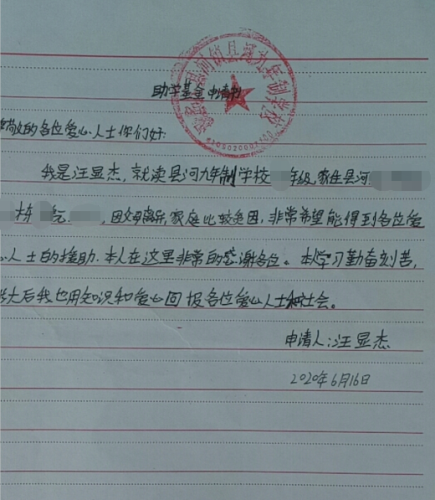 县河镇县河九年制学校
助学基金申请书
敬的各位爱心人士你们好:
我是汪显杰,就读县河九年制学校 年级,家住县河
村 ,因父母离异,家庭比较贫困,非常希望能得到各位爱
心人士的援助.本人在这里非常的感谢各位。本人学习勤奋刻苦,
长大后我也用知识和爱心回报各位爱心人士和社会。
申请人:汪显杰
2020年6月16日